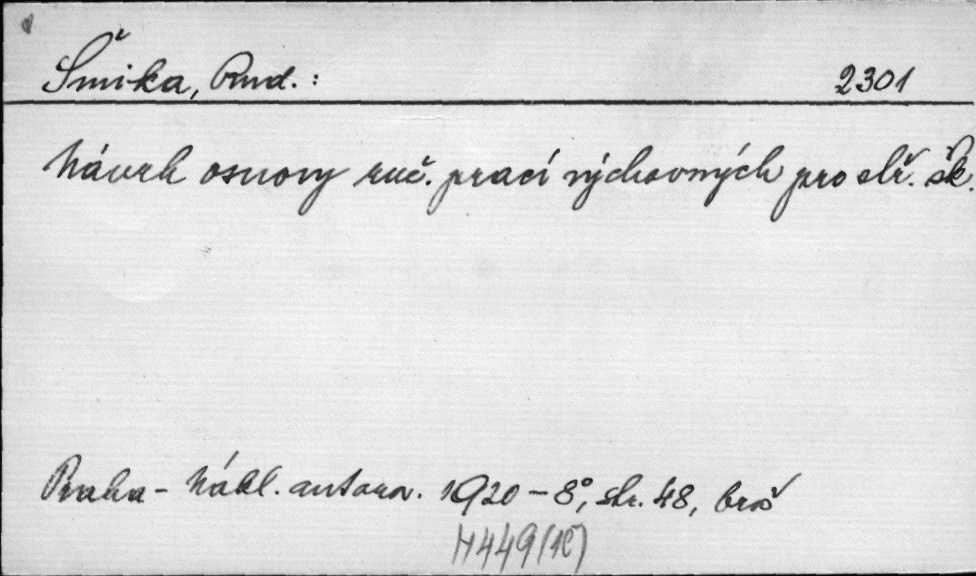 Šimka, Rud.: 2301
Návrh osnovy ruč. prací výchovných pro stř. šk.
Praha - Nákl. autorov. 1920 - 8°, str. 48, brož
H449(1č)